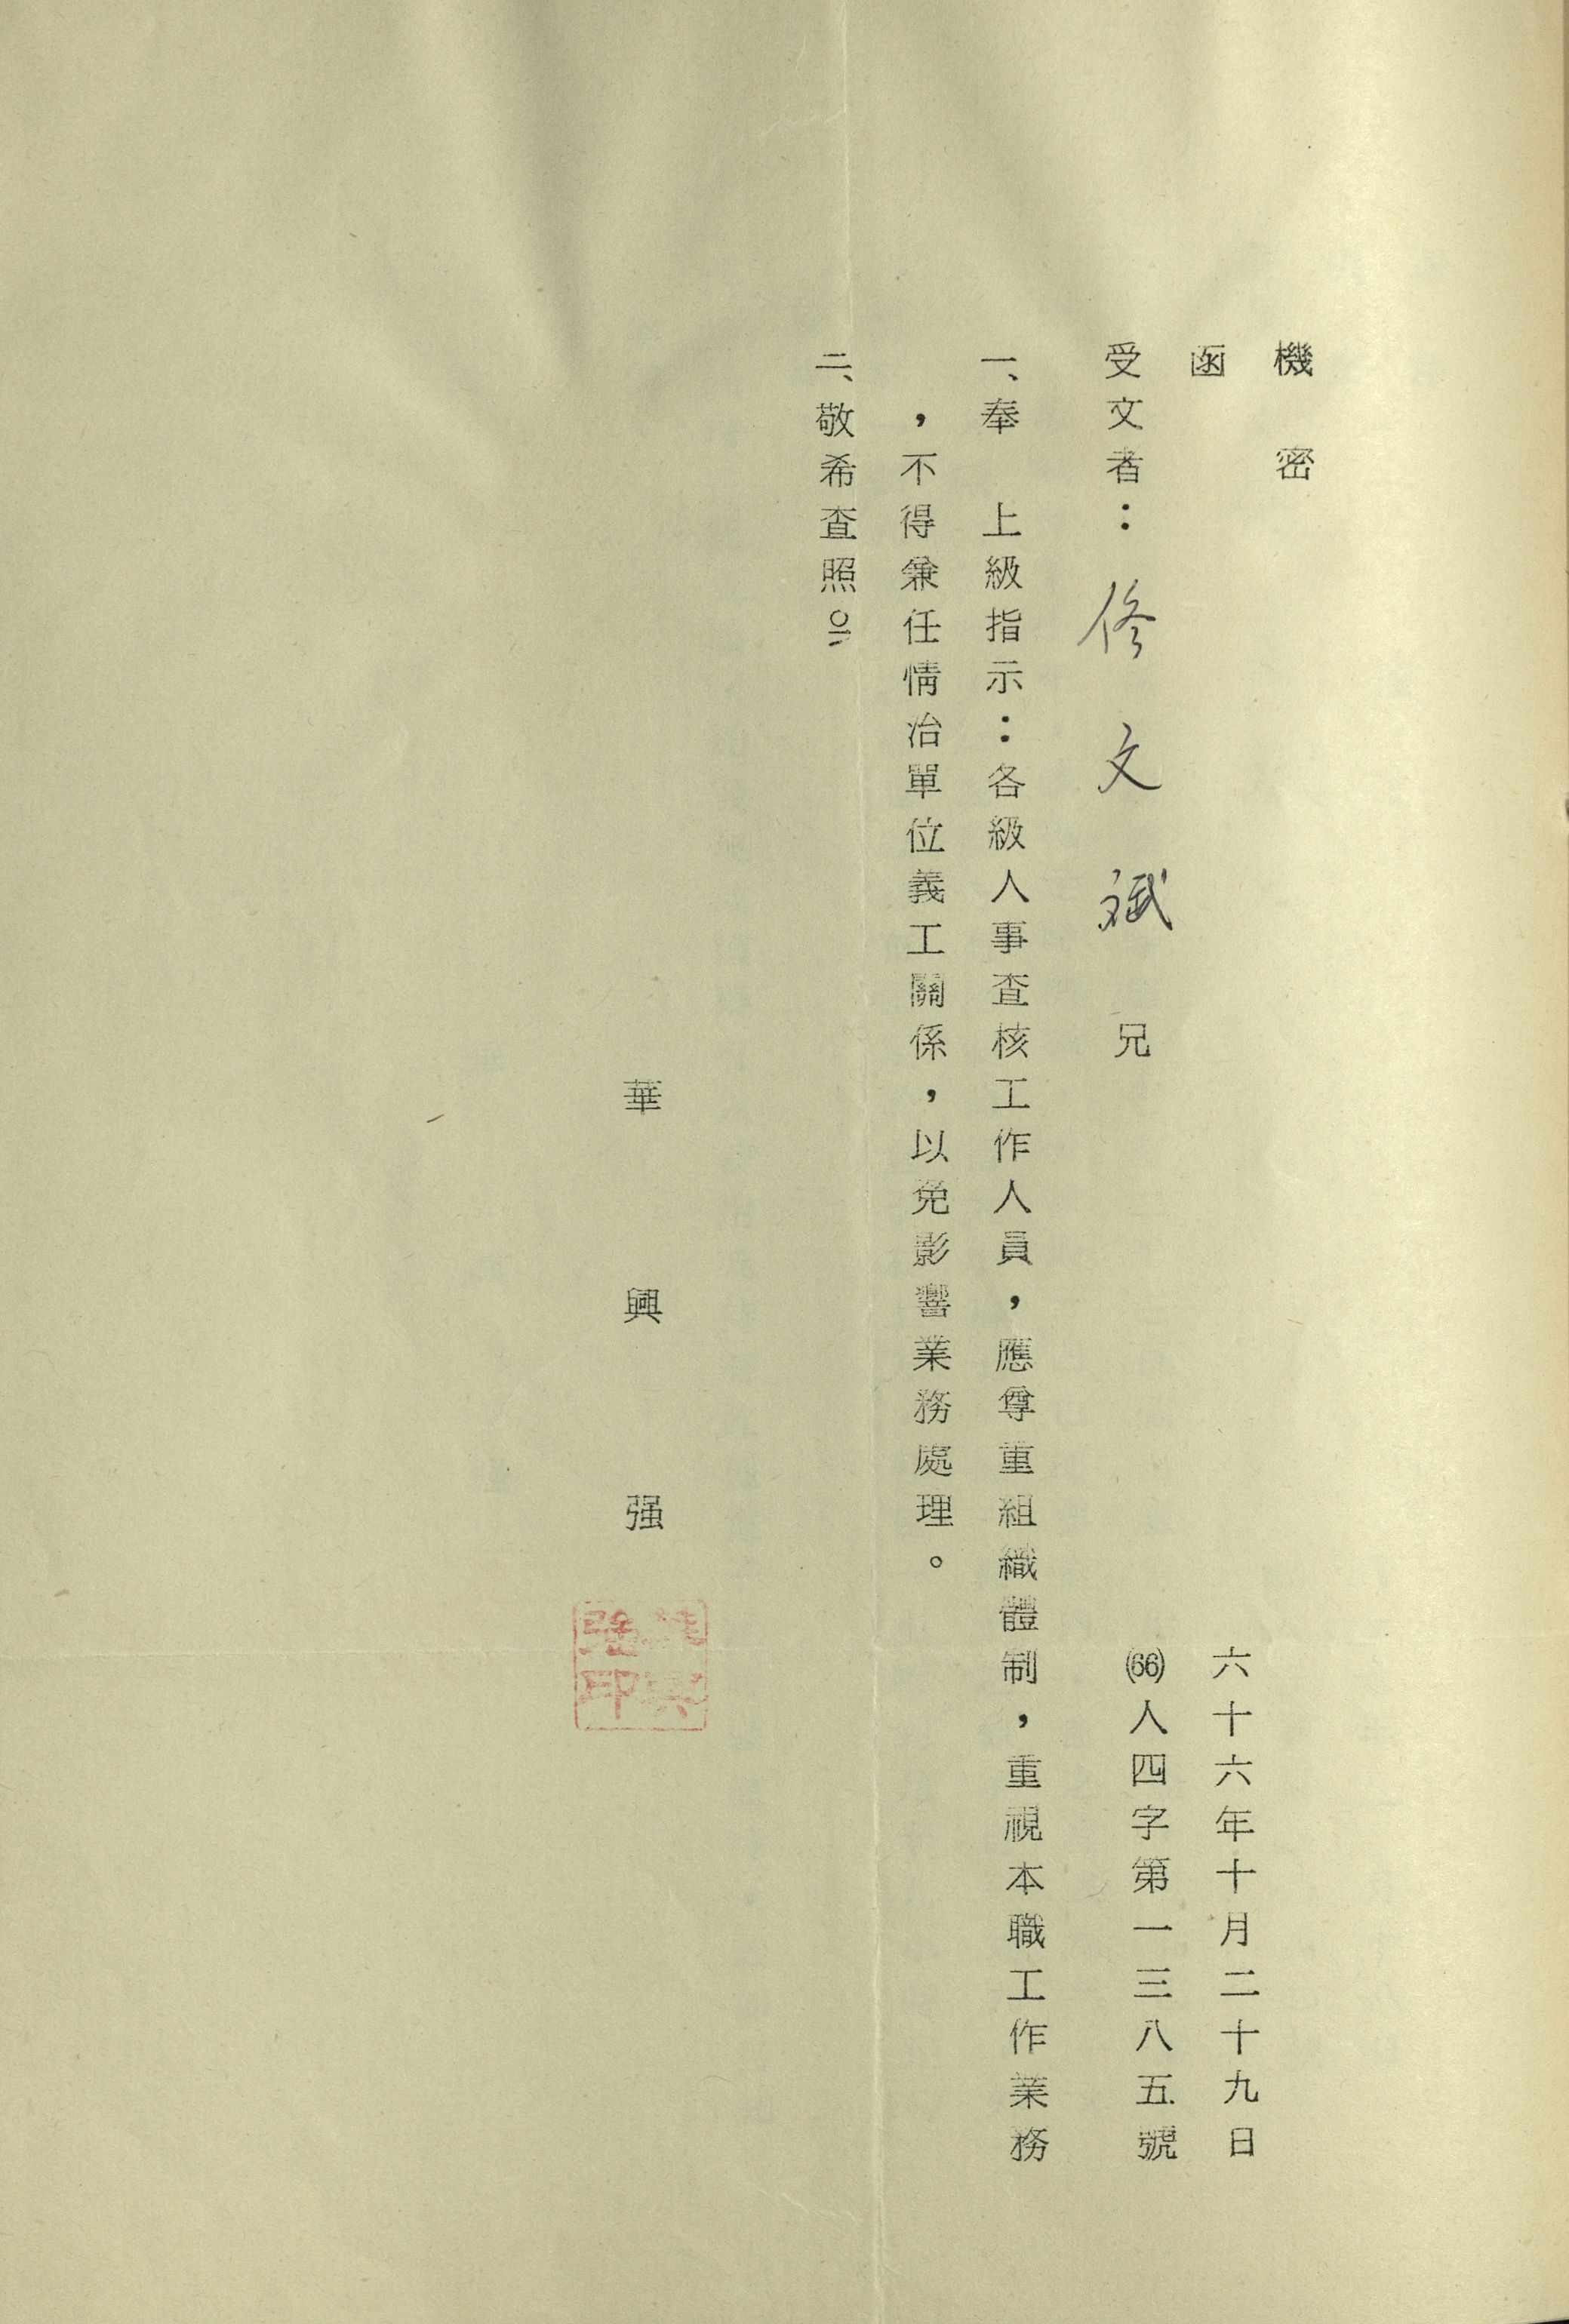 機密
函
六十六年十月二十九日
(66)人四字第一三八五號
受文者：修文斌兄
一、奉　上級指示：各級人事查核工作人員，應尊重組織體制，重視本職工作業務
，不得兼任情治單位義工關係，以免影響業務處理。
二、敬希查照。
華興强
華興强印